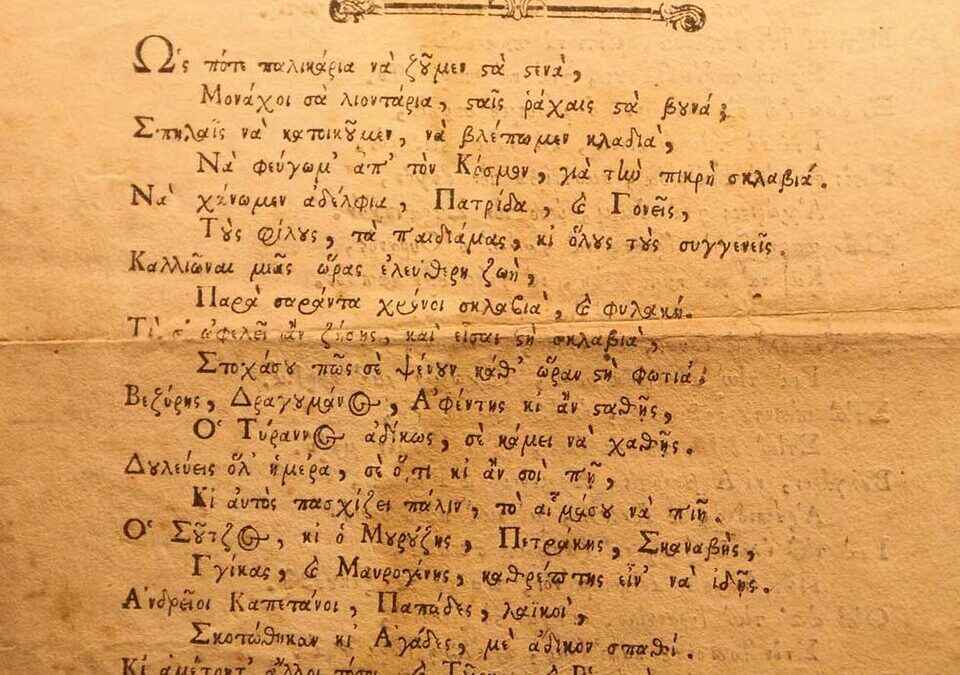 Ὡς πότε παλικάρια νὰ ζοῦμεν στὰ στενὰ,
Μονάχοι σὰ λιοντάρια, σταῖς ῥάχαις στὰ βουνά;
Σπηλαῖς νὰ κατοικοῦμεν, νὰ βλέπωμεν κλαδιὰ,
Νὰ φεύγωμ' ἀπ' τὸν Κόσμον, γιὰ τὴν πικρὴ σκλαβιά.
Νὰ χάνωμεν ἀδέλφια, Πατρίδα, & Γονεῖς,
Τοὺς φίλους, τὰ παιδιάμας, κι ὅλους τοὺς συγγενεῖς.
Καλλιῶναι μιᾶς ὥρας ἐλεύθερη ζωὴ,
Παρὰ σαράντα χρόνοι σκλαβιὰ, & φυλακή.
Τὶ σ' ὠφελεῖ ἂν ζήσῃς, καὶ εἶσαι στὴ σκλαβιὰ,
Στοχάσου πῶς σὲ ψένουν κάθ' ὥραν στὴ φωτιά;
Βεζύρης, Δραγουμάνος, Ἀφέντης κι ἂν σταθῇς,
Ὁ Τύραννος ἀδίκως, σὲ κάμει νὰ χαθῇς.
Δουλεύεις ὅλ' ἡμέρα, σὲ ὅ,τι κι ἂν σοὶ πῇ,
Κι αὐτὸς πασχίζει πάλιν, τὸ αἷμάσου νὰ πιῇ.
Ὁ Σοῦτζος, κι ὁ Μουρούζης, Πετράκης, Σκαναβῆς,
Γγίκας, & Μαυρογένης, καθρέπτης εἶν' νὰ ἰδῇς.
Ἀνδρεῖοι Καπετάνοι, Παπάδες, λαϊκοὶ,
Σκοτώθηκαν κι Ἀγάδες, μὲ ἄδικον σπαθί.
Κι ἀμέτρητ' ἄλλοι τόσοι, &